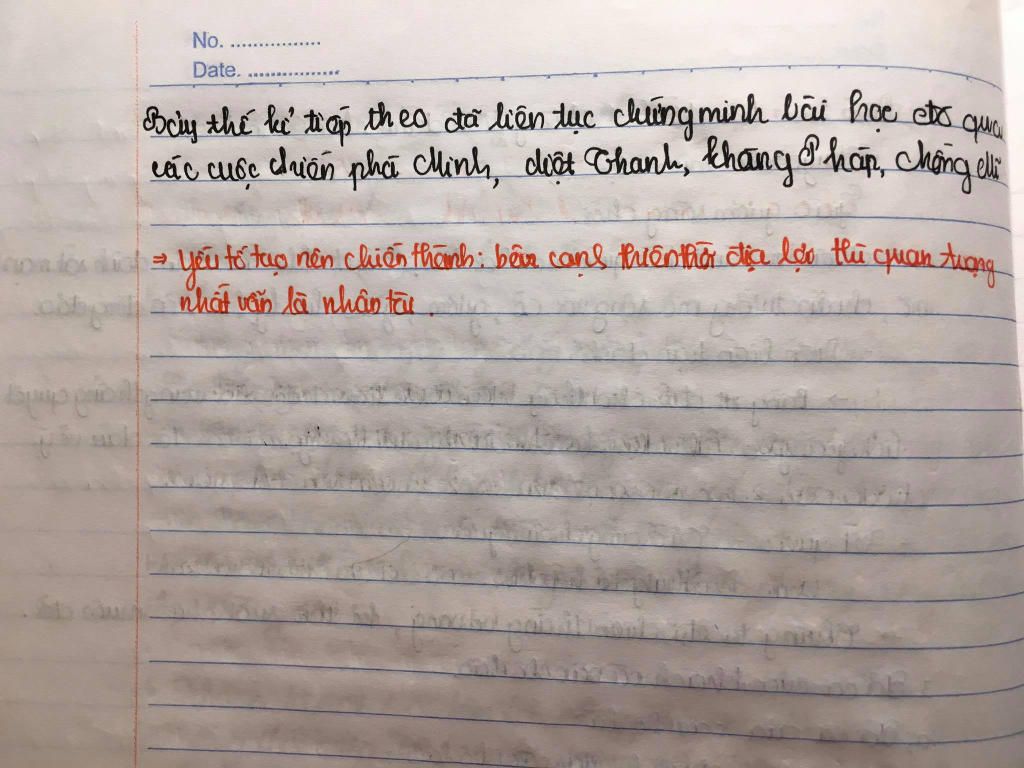 No. ................
Date. ................
Bảy thế kỉ tiếp theo đã liên tục chứng minh bài học đó qua
các cuộc chiến phá Minh, diệt Thanh, kháng Pháp, chống Mĩ
⇒ Yếu tố tạo nên chiến thắng: bên cạnh thiên thời địa lợi thì quan trọng
nhất vẫn là nhân tài.